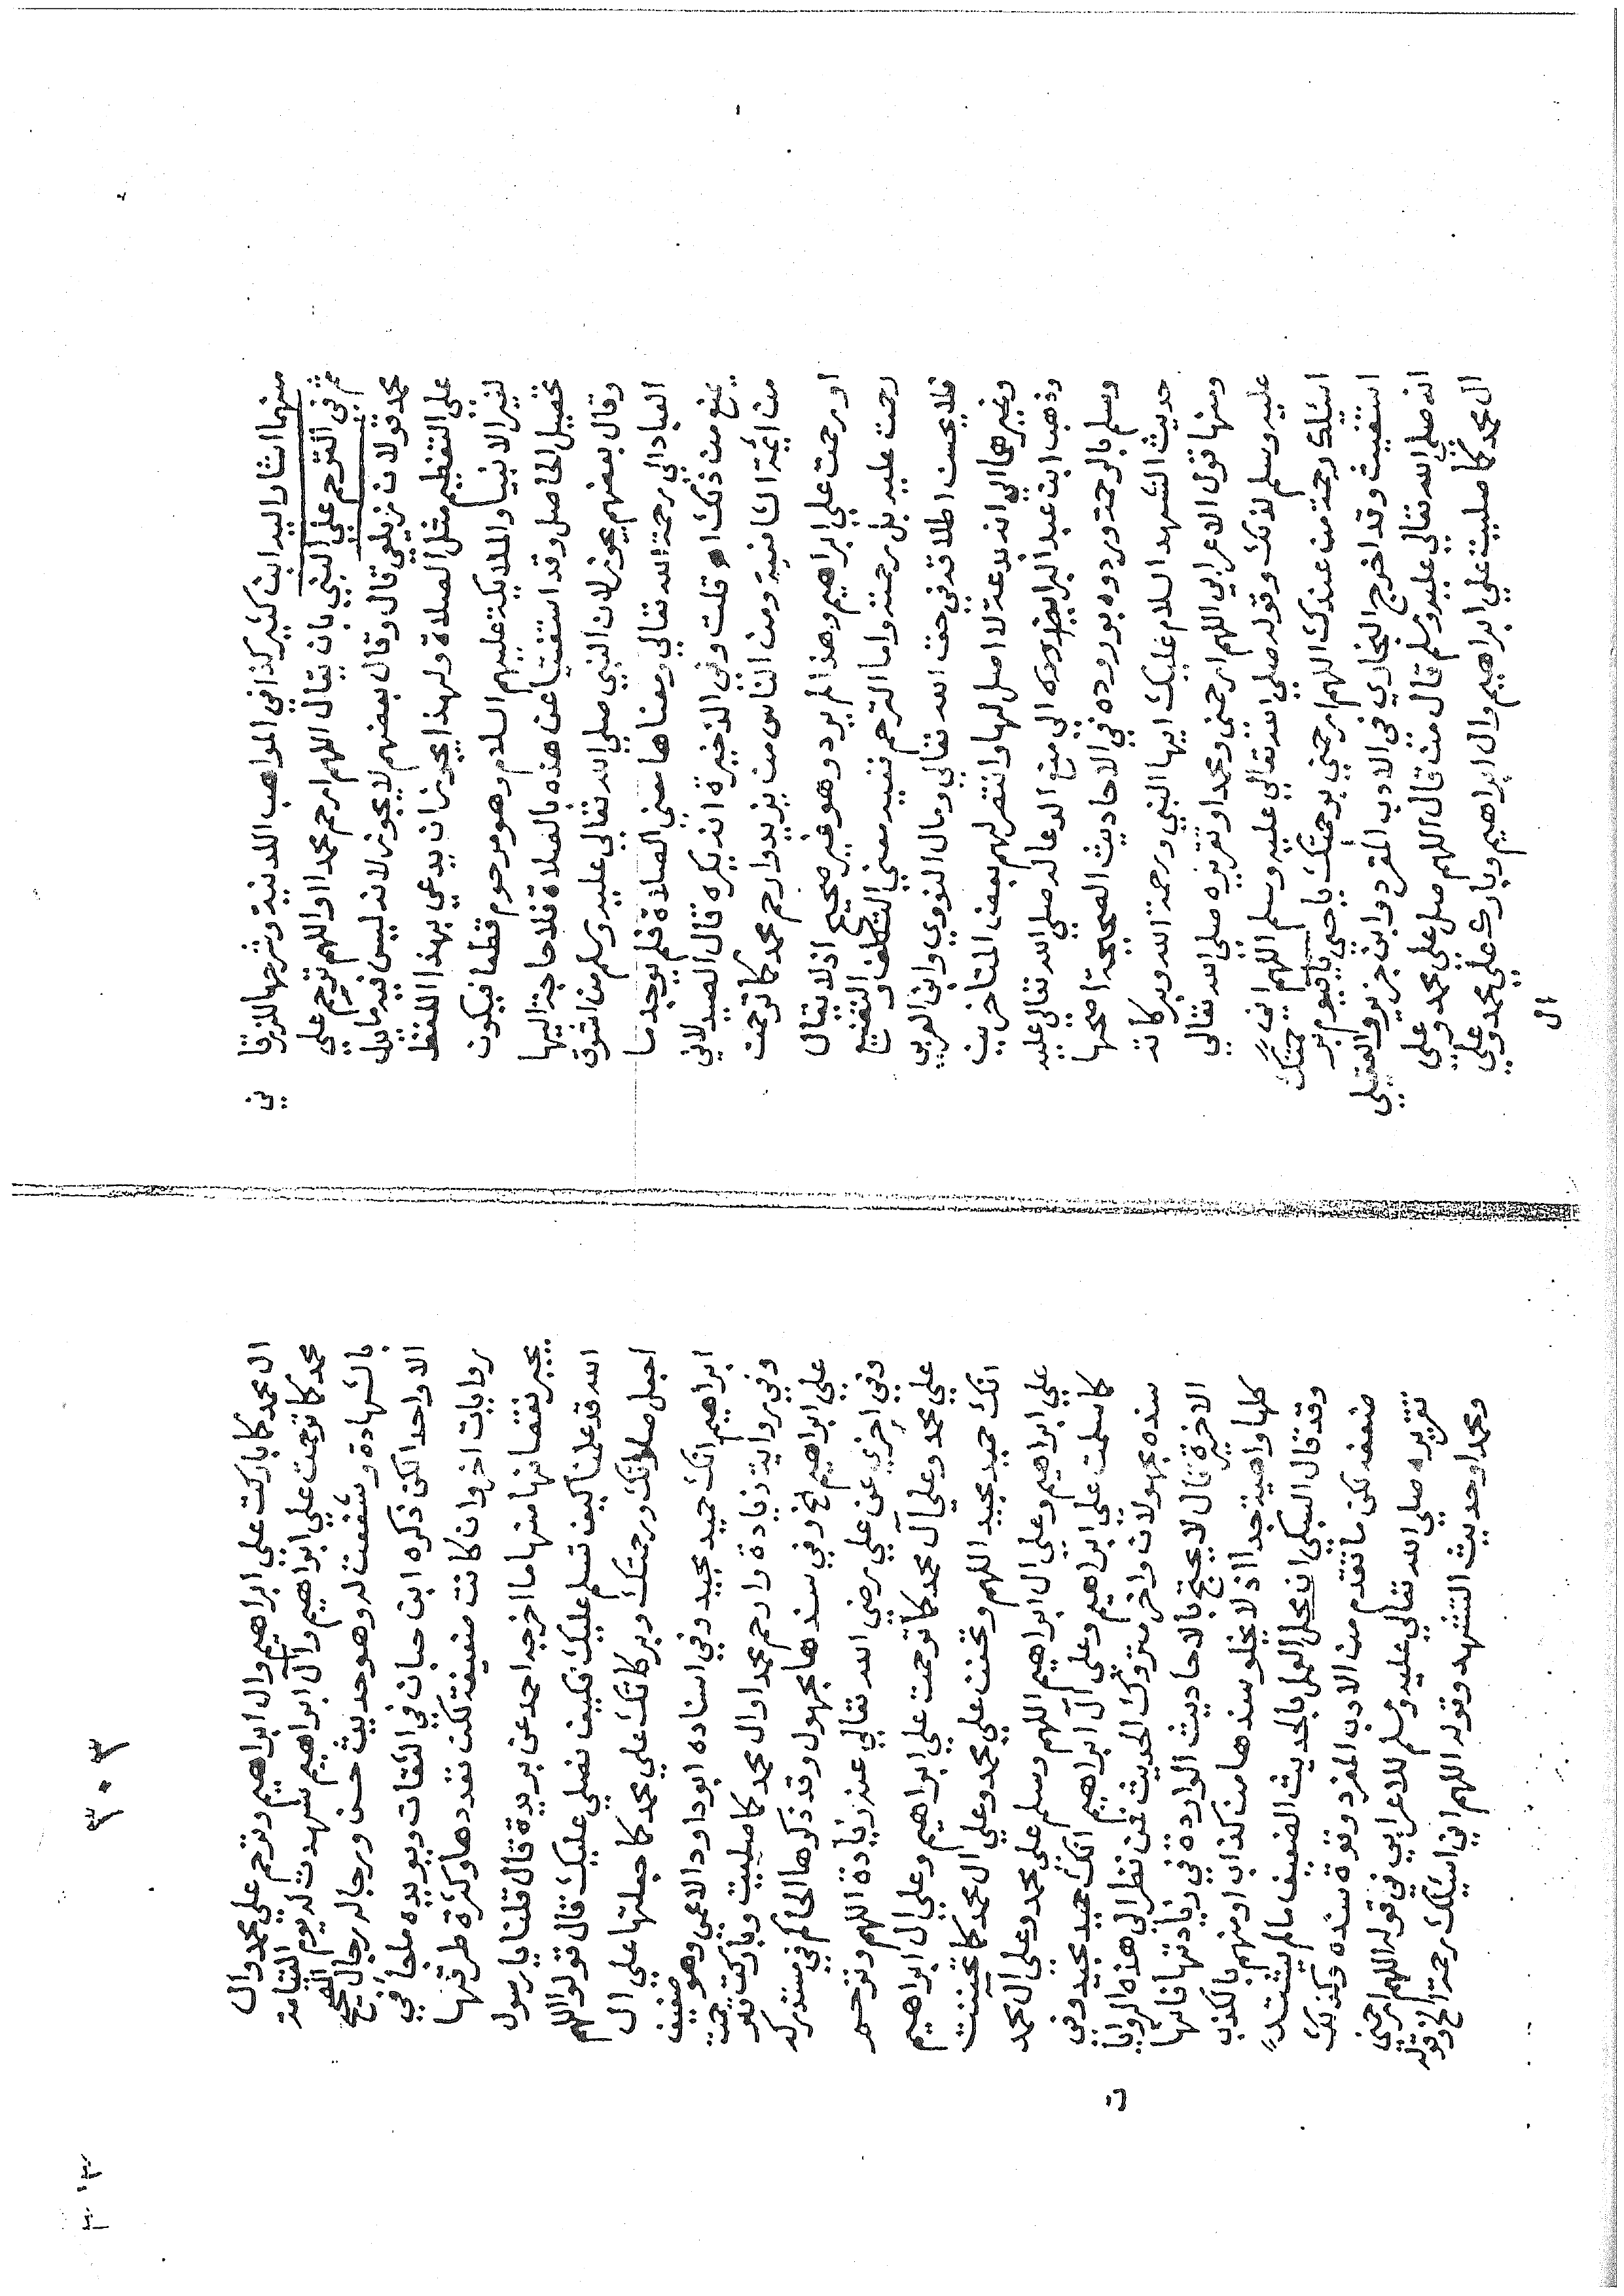 منهما اشار اليه ابن كثير كذا في المواهب اللدنية وشرحها للزرقا
ني
ثم في الترحم علي النبي بان يقال اللهم ارحم محمدا او اللهم ترحم علي
محمد قولان نزيلعي قال وقال بعضهم لا يجوز لانه ليس فيه ما يدل
علي التعظيم مثل الصلاة ولهذا يجوز ان يدعي بهذا اللفظ
لغير الانبيا والملايكة عليهم السلام وهو مرحوم قطعا فيكون
تحصيل الحاصل وقد استغنيا عن هذه بالصلاة فلا حاجة اليها
وقال بعضهم يجوز لان النبي صلي الله تعالي عليه وسلم من اشوق
العباد الي رحمة الله تعالي ومعناها معني الصلاة فلم يوجد ما
يمنع من ذلك اه قلت وفي الذخيرة انه يكره قال الصيدلاني
من ايمة الشافعية ومن الناس من يزيد وارحم محمد كما ترحمت
او رحمت علي ابراهيم وهذا لم يرد وهو غير صحيح اذ لا يقال
رحمت عليه بل رحمته واما الترحم ففيه معني التكلف او التصنع
فلا يحسن اطلاقه في حق الله تعالي ومال النووي وابن العربي
وغيرهما الي انه بدعة لا اصل لها وانتصر لهم بعض المتاخرين
وذهب ابن عبد البر الي منع الدعا له صلي الله تعالي عليه
وسلم بالرحمة وردوه بوروده في الاحاديث الصحيحة اصحها
حديث التشهد السلام عليك ايها النبي ورحمة الله وبركاته
ومنها قول الاعرابي اللهم ارحمني ومحمدا وتقريره صلي الله تعالي
عليه وسلم لذلك وقوله صلي الله تعالي عليه وسلم اللهم اني
اسئلك رحمة من عندك اللهم ارحمني برحمتك يا حي يا قيوم بر
حمتك
استغيث وقد اخرج البخاري في الادب المفرد وابن جرير والعقيلي
انه صلي الله تعالي عليه وسلم قال من قال اللهم صل علي محمد وعلي
ال محمد كما صليت علي ابراهيم وال ابراهيم وبارك علي محمد وعلي
ال
ال محمد كما باركت علي ابراهيم وال ابراهيم وترحم علي محمد وال
محمد كما ترحمت علي ابراهيم وآل ابراهيم شهدت له يوم القيامة
بالشهادة وشفعت له وهو حديث حسن ورجاله رجال الصحيح
الا واحدا لكن ذكره ابن حبان في الثقات ويويده ملجأ في
روايات اخر وان كانت ضعيفة لكن تعددها وكثرة طرقها
يجبر نقصانها منها ما اخرجه احمد عن بريدة قال قلنا يا رسول
الله قد علمنا كيف نسلم عليك فكيف نصلي عليك قال قولوا اللهم
اجعل صلواتك ورحمتك وبركاتك علي محمد كما جعلتها علي ال
ابراهيم انك حميد مجيد وفي اسناده ابو داود الاعمي وهو ضعيف
وفي رواية زيادة وارحم محمدا وال محمد كما صليت وباركت وترحمت
علي ابراهيم الخ وفي سندها مجهول وقد ذكرها الحاكم في مستدركه
وفي اخري عن علي رضي الله تعالي عنه زيادة اللهم وترحم
علي محمد وعلي آل محمد كما ترحمت علي ابراهيم وعلي ال ابراهيم
انك حميد مجيد اللهم وتحنن علي محمد وعلي ال محمد كما تحننت
علي ابراهيم وعلي ال ابراهيم اللهم وسلم علي محمد وعلي ال محمد
كما سلمت علي ابراهيم وعلي آل ابراهيم انك حميد مجيد وفي
سنده مجهولات واخر متروك الحديث فمن نظر الي هذه الروايا
ت
الاخيرة قال لا يحتج بالاحاديث الواردة في زيادتها فانها
كلها واهية جدا اذ لا يخلو سندها من كذاب او متهم بالكذب
وقد قال السبكي ان محل العمل بالحديث الضعيف ما لم يشتد
ضعفه لكن ما تقدم من الادب المفرد وقوة سنده وكذلك
تقريره صلي الله تعالي عليه وسلم للاعرابي في قوله اللهم ارحمني
ومحمدا وحديث التشهد وقوله اللهم اني اسئلك رحمة الخ وقوله
٣٠٣